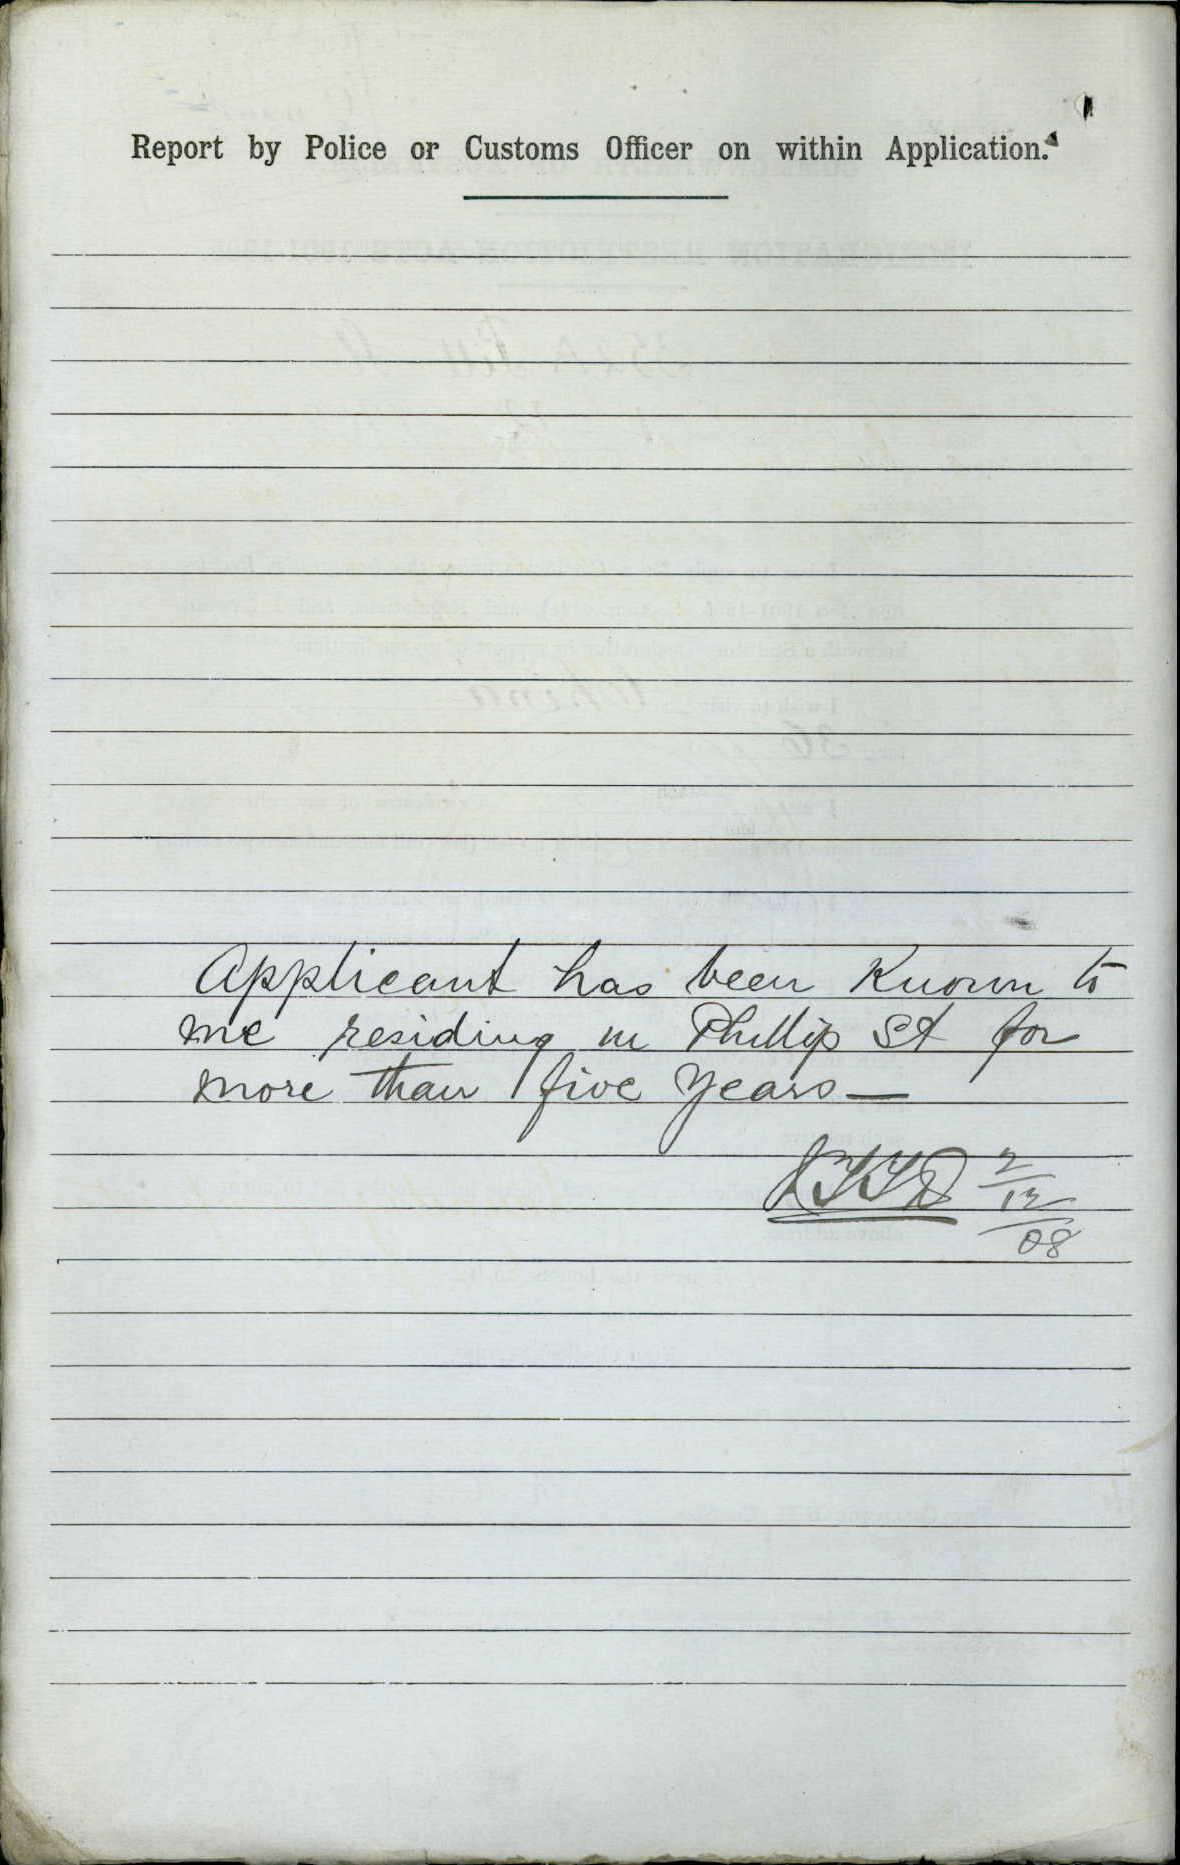 Report by Police or Customs Officer on within Application.
Applicant has been known to
me residing in Phillip St for
more than five years —
2/12/08